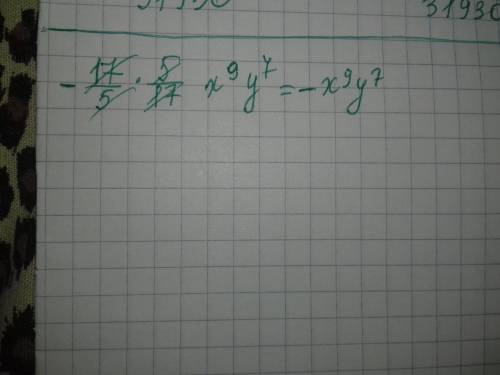 31930
-17/5 · 5/17 x⁹y⁷ = -x⁹y⁷